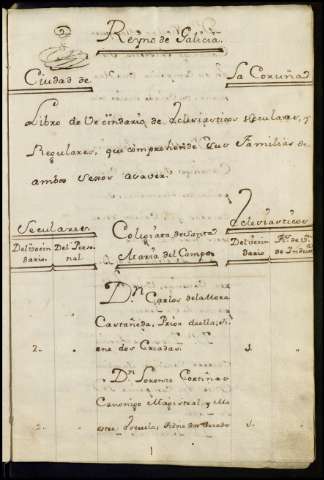 Reyno de Galicia.
Ciudad de La Coruña
Libro de Vecindario de Eclesiasticos seculares, y
Regulares, que comprehende sus Familias de
ambos sexos asaver.
Seculares Eclesiasticos
Colegiata de Santa
Maria del Campo
Del Vecindario. Del Personal. Del Vecindario
Dn Carlos de la Mora
Castañeda, Prior de ella, tiene
2. ne dos Criadas 1.
Dn Lorenzo Cortinas
Canonigo Magistral, y Maestre
2. Escuela, tiene dos 1.
1